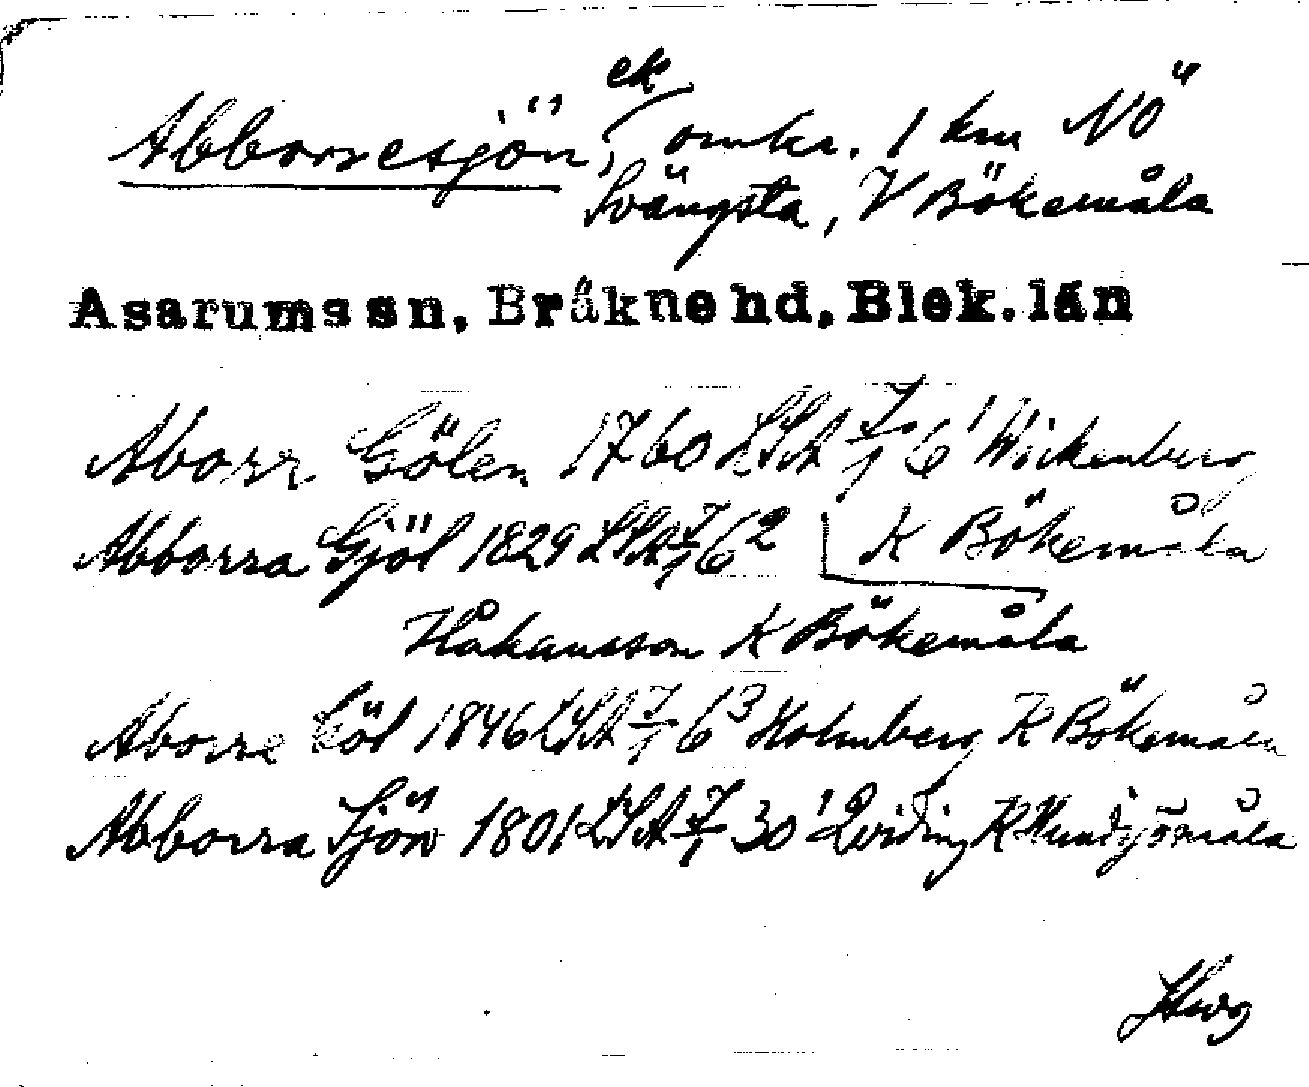 Abborresjön, ek omkr. 1 km NÖ
Svängsta, V Bökemåla
Asarums sn, Bräkne hd, Blek. län
Aborr Gölen 1760 LSA 7/1 6¹ Wickenberg
K Bökemåla
Abborra Gjöl 1829 LSA 7/1 6²
Håkansson K Bökemåla
Aborre Göl 1846 LSA 7/1 6³ Holmberg K Bökemåla
Abborra Sjön 1801 LSA 7/1 30¹ Qviding K Hundsjömåla